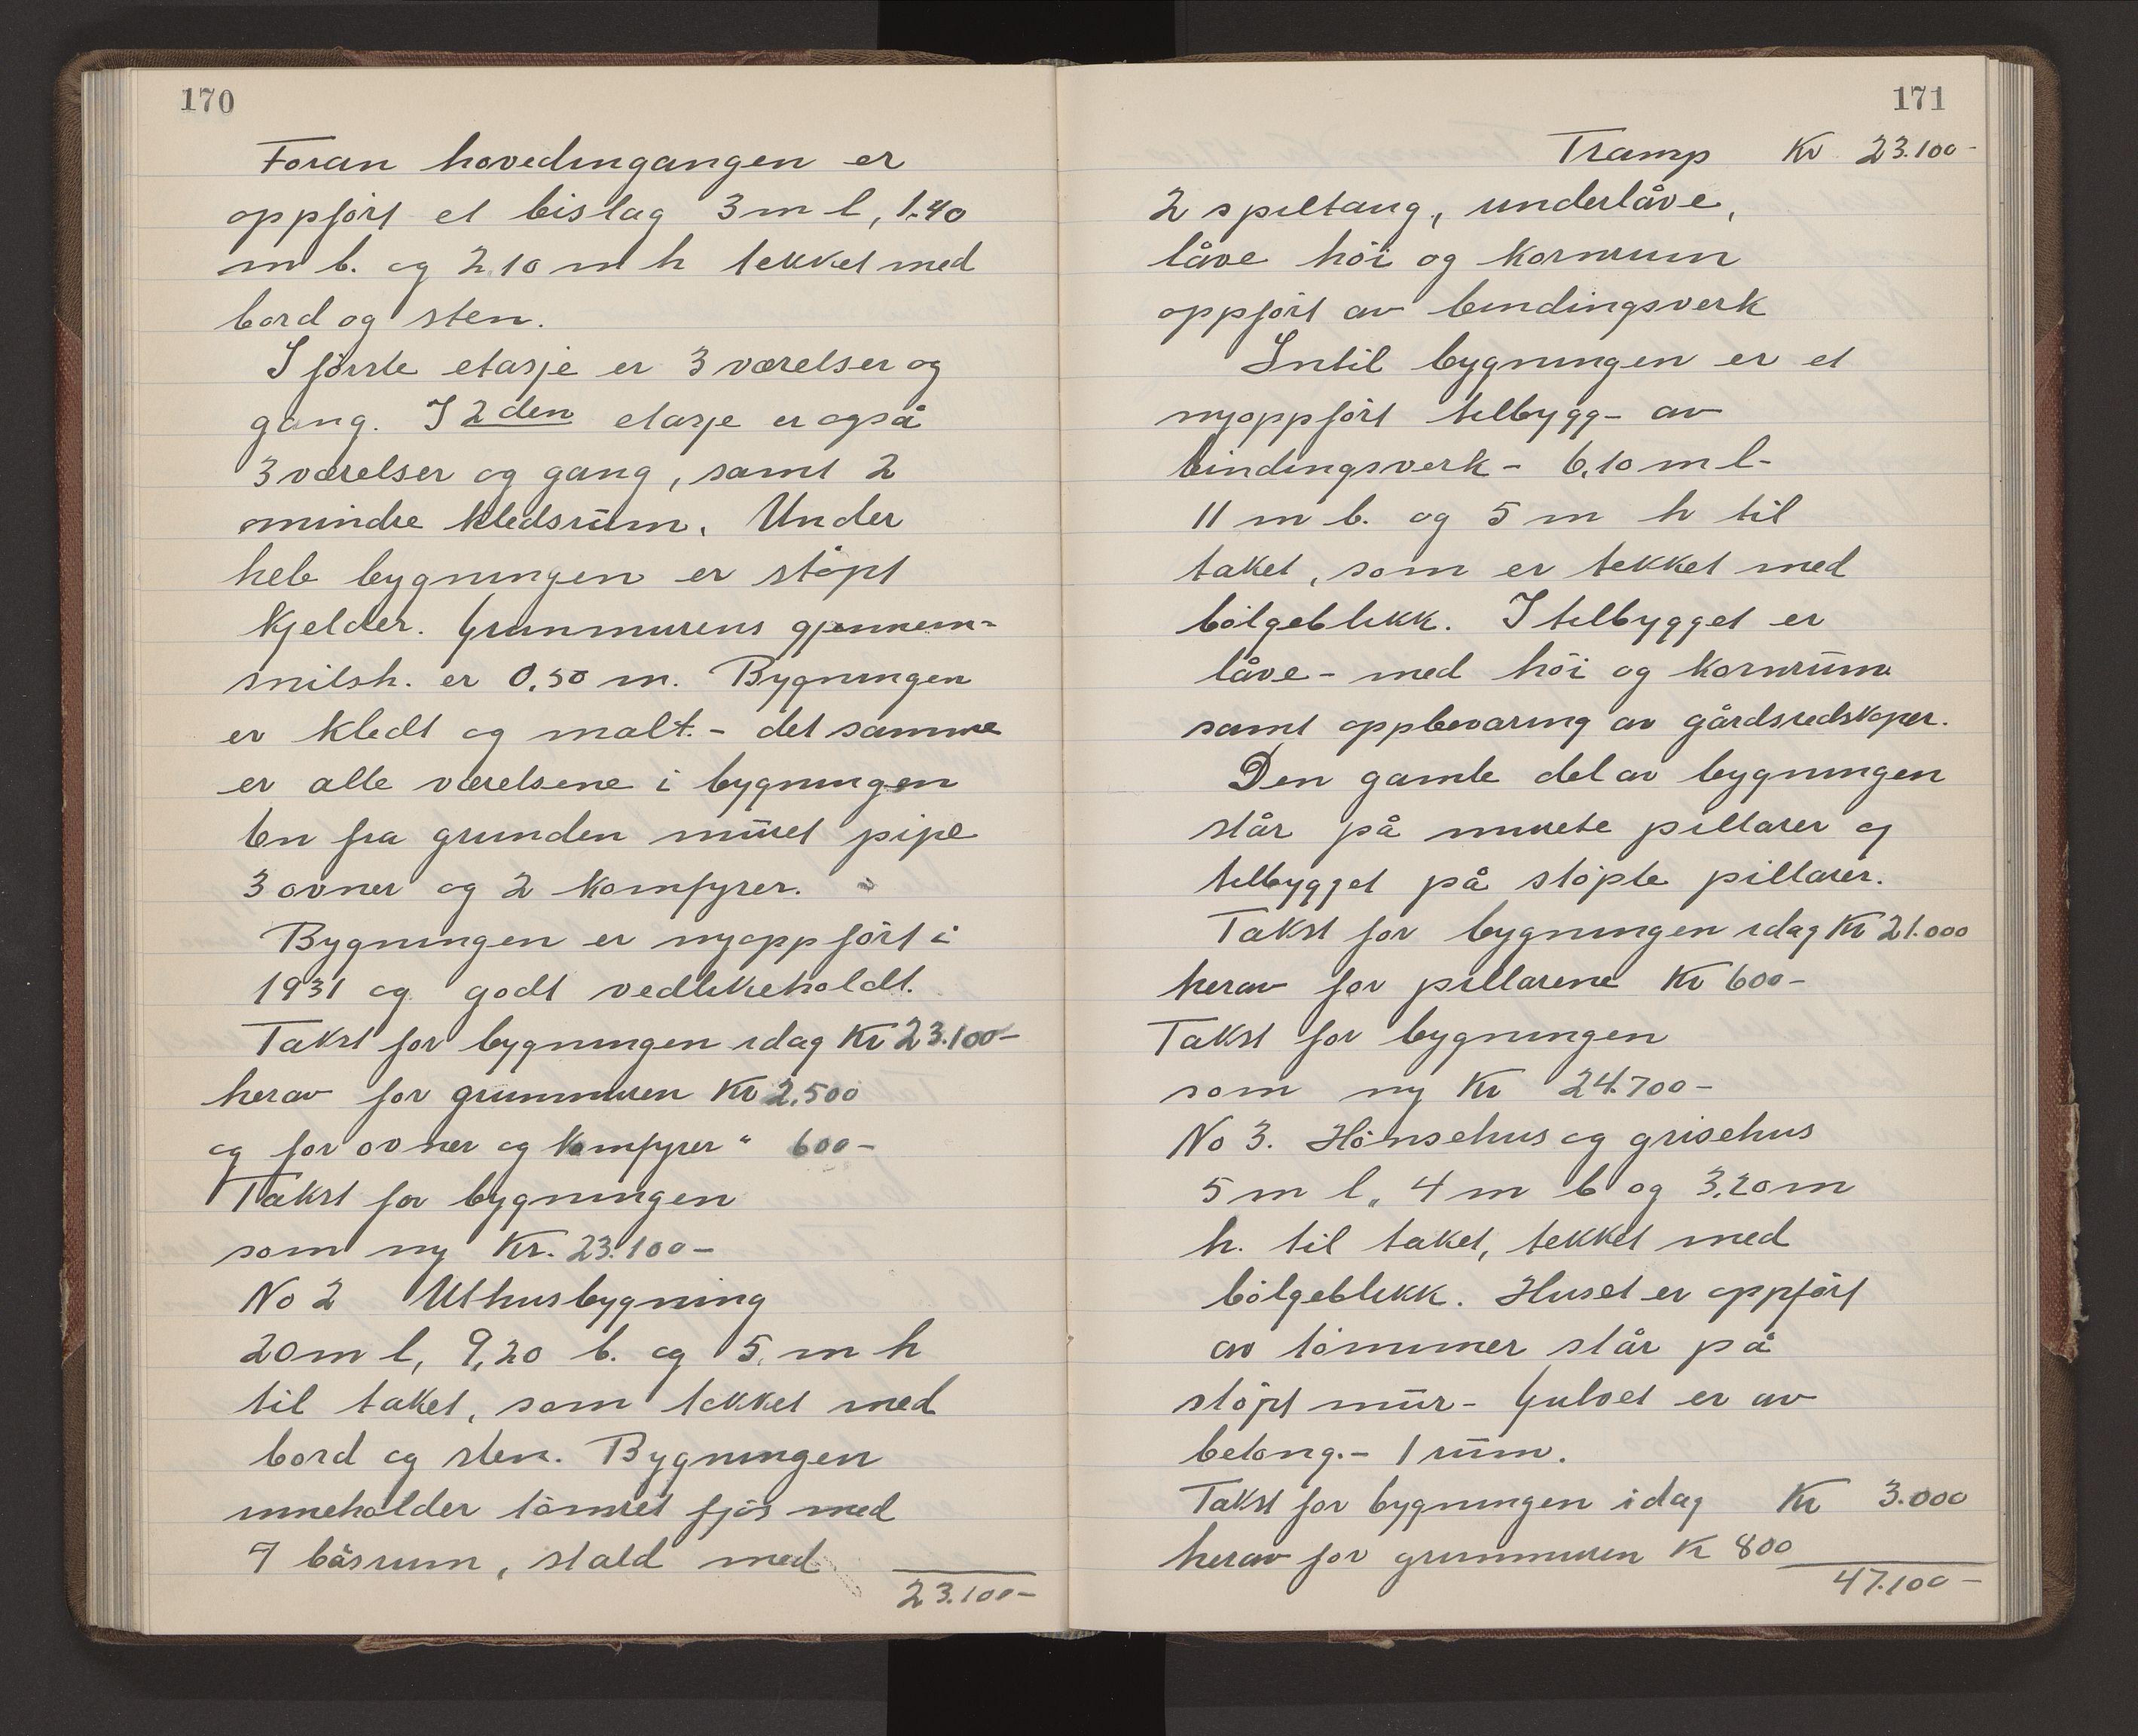 170
Foran hovedingangen er
oppført et bislag 3 m l, 1.40
m b. og 2,10 m h tekket med
bord og sten.
I første etasje er 3 værelser og
gang. I 2den etasje er også
3 værelser og gang, samt 2
mindre kledsrum. Under
hele bygningen er støpt
kjelder. Grunnmurens gjennem-
snitsh. er 0,50 m. Bygningen
er kledt og malt. - det samme
er alle værelsene i bygningen
En fra grunden muret pipe
3 ovner og 2 komfyrer.
Bygningen er nyoppført i
1931 og godt vedlikeholdt.
Takst for bygningen idag Kr 23.100-
herav for grunnmuren Kr 2.500
og for ovner og komfyrer " 600-
Takst for bygningen
som ny Kr. 23.100-
No 2 Uthusbygning
20 m l, 9,20 b. og 5, m h
til taket, som tekket med
bord og sten. Bygningen
inneholder tømret fjøs med
7 båsrum, stald med
23.100-
171
Tramp Kr 23.100-
2 spiltaug, underlåve,
låve høi og kornrum
oppført av bindingsverk
Intil bygningen er et
nyoppført tilbygg - av
bindingsverk - 6,10 m l -
11 m b. og 5 m h til
taket, som er tekket med
bølgeblikk. I tilbygget er
låve - med høi og kornrum
samt oppbevaring av gårdsredskaper.
Den gamle del av bygningen
står på murete pillarer og
tilbygget på støpte pillarer.
Takst for bygningen idag Kr 21.000
herav for pillarene Kr 600-
Takst for bygningen
som ny Kr 24.700-
No 3. Hønsehus og grisehus
5 m l, 4 m b og 3,20 m
h. til taket, tekket med
bølgeblikk. Huset er oppført
av tømmer står på
støpt mur - Gulvet er av
betong. - 1 rum.
Takst for bygningen idag Kr 3.000
herav for grunnmuren K 800
47.100-